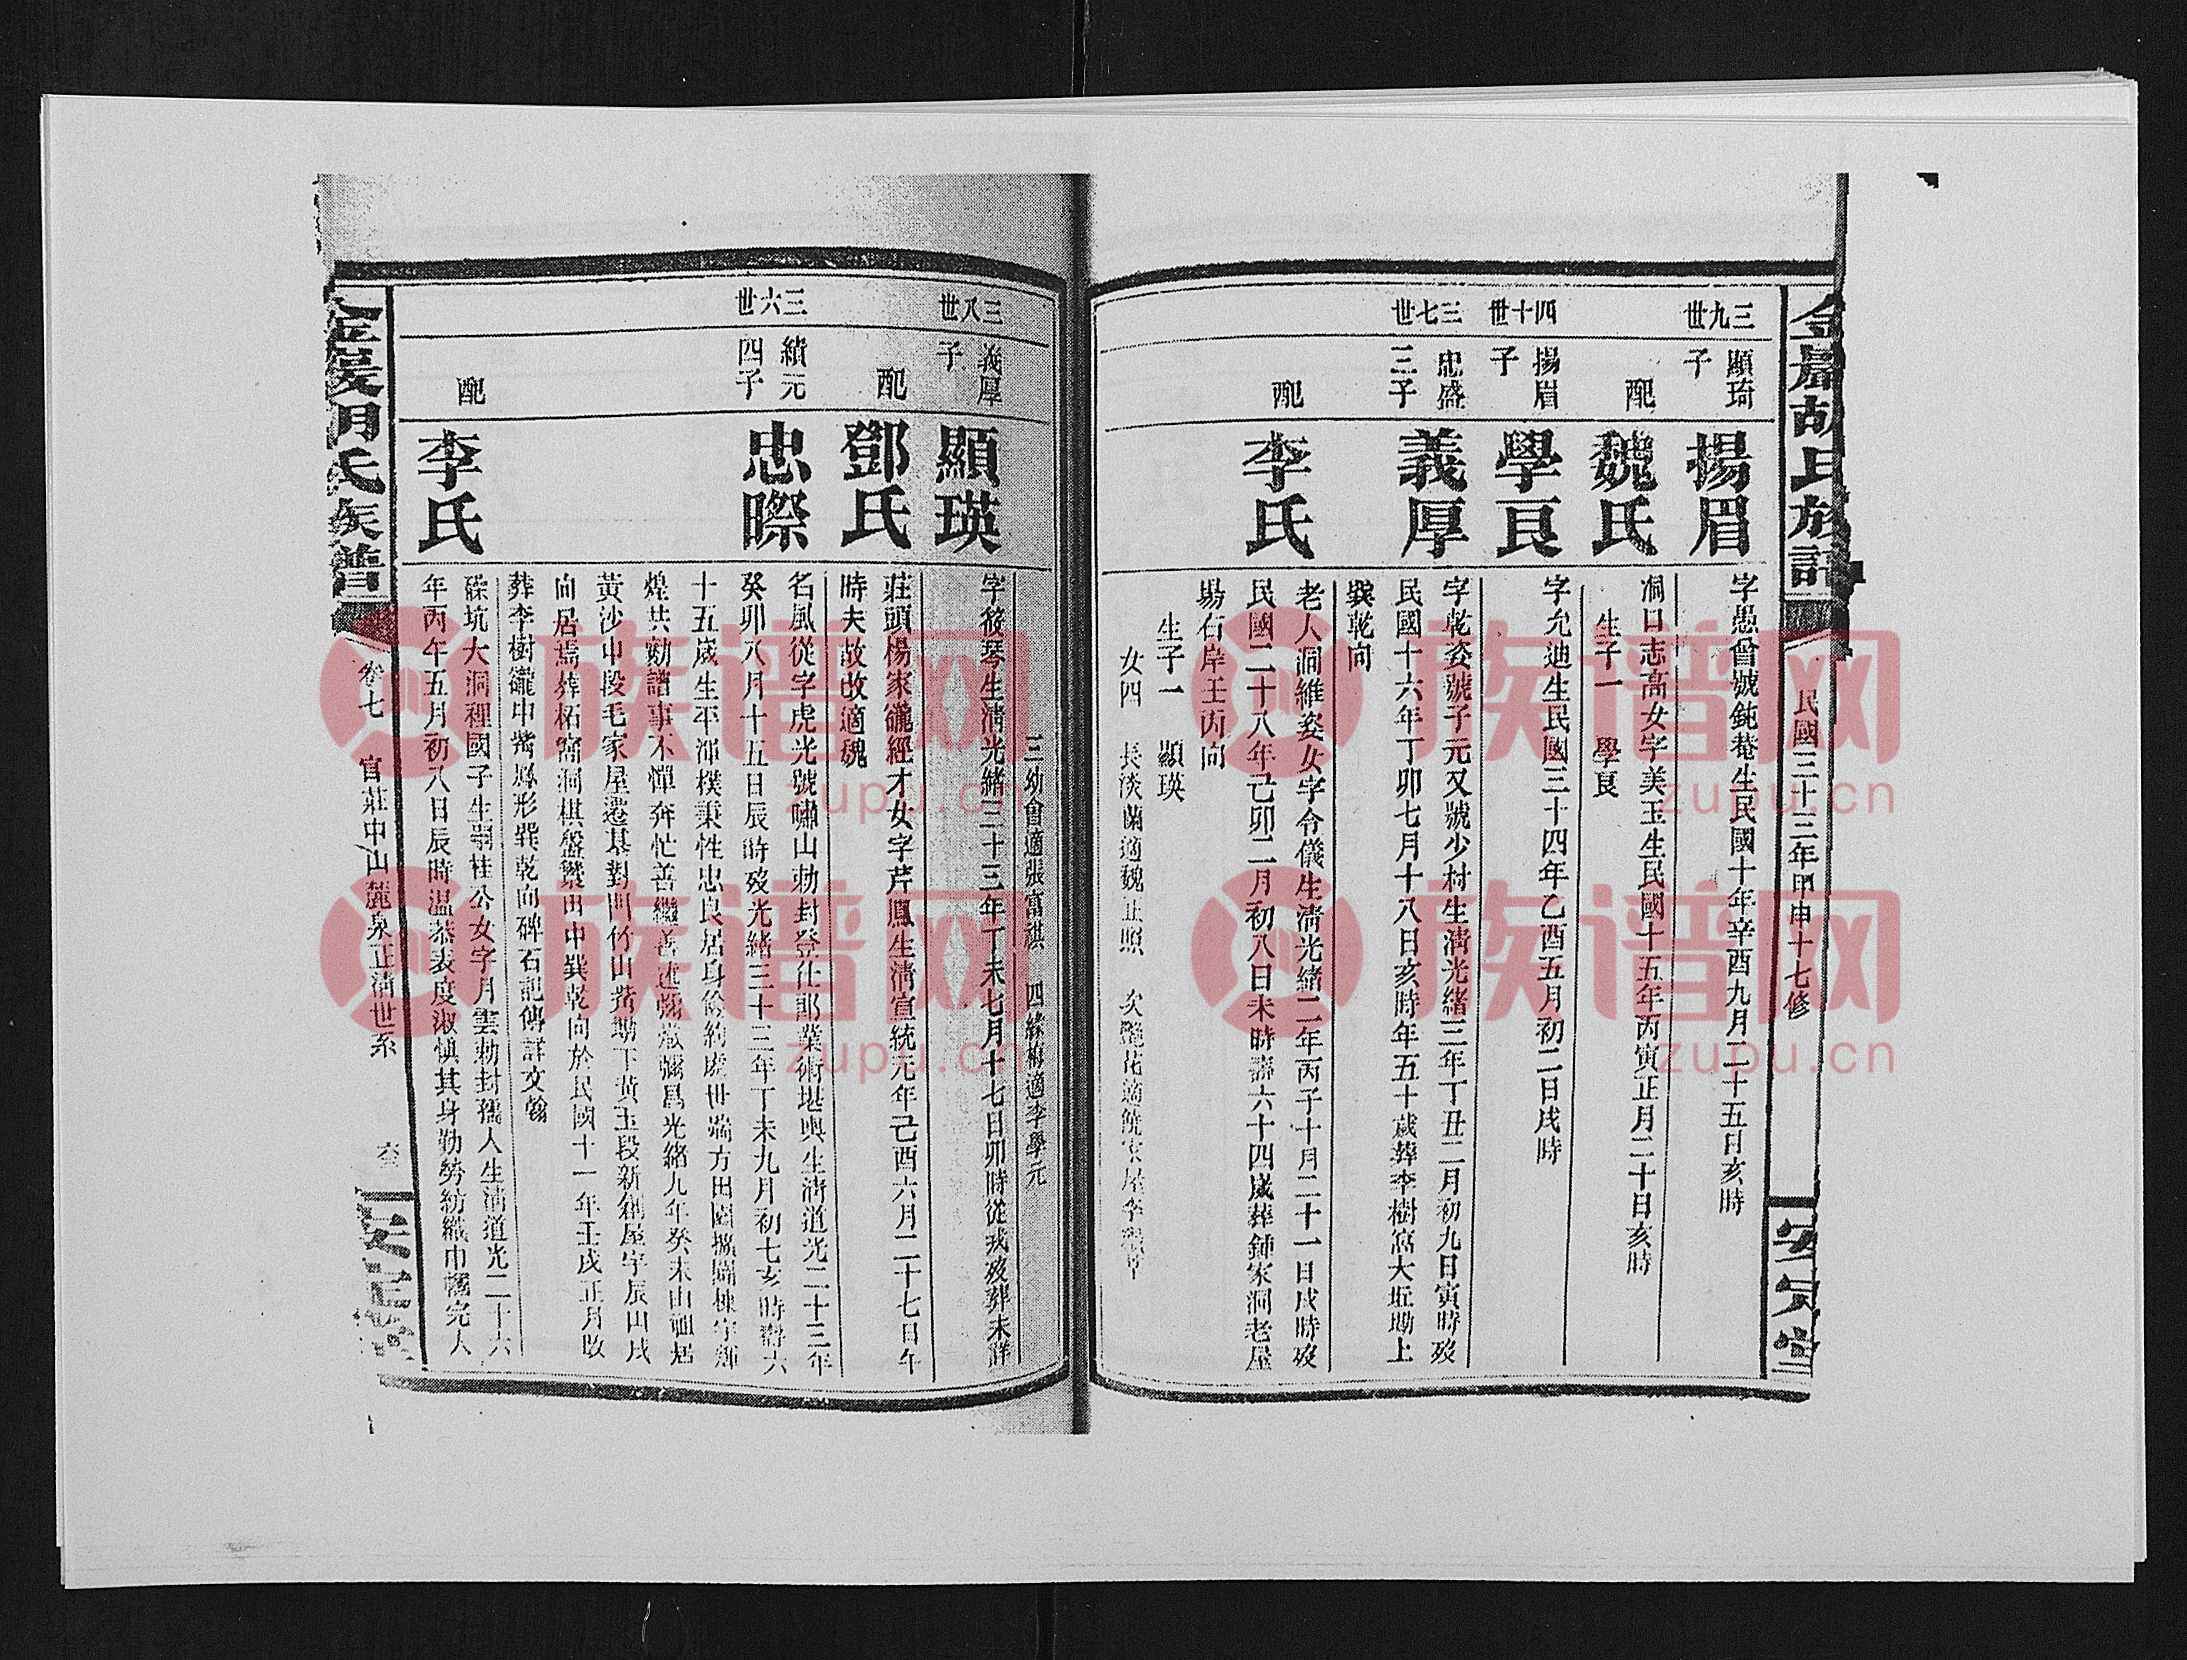 民國三十三年甲申十七修
三九世
顯琦子
揚眉
字愚曾號鈍菴生民國十年辛酉九月二十五日亥時
配
魏氏
洞口志高女字美玉生民國十五年丙寅正月二十日亥時
生子一 學艮
四十世
揚眉子
學艮
字允迪生民國三十四年乙酉五月初二日戌時
三七世
忠盛三子
義厚
字乾姿號子元又號少村生清光緒三年丁丑二月初九日寅時歿
民國十六年丁卯七月十八日亥時年五十歲葬李樹窩大坵墈上
巽乾向
配
李氏
老人洞維姿女字令儀生清光緒二年丙子十月二十一日戌時歿
民國二十八年己卯二月初八日未時壽六十四歲葬鍾家洞老屋
場石岸壬丙向
生子一 顯瑛
女四 長淡蘭適魏正照 次艷花適
三幼會適張富祺 四緣梅適李學元
三八世
義厚子
顯瑛
字筱琴生清光緒三十三年丁未七月十七日卯時從戎歿葬未詳
配
鄧氏
莊頭楊家巃經才女字芹鳳生清宣統元年己酉六月二十七日午
時夫故改適魏
三六世
續元四子
忠際
名風從字虎光號嘯山勅封登仕郎業術堪輿生清道光二十三年
癸卯八月十五日辰時歿光緒三十三年丁未九月初七亥時壽六
十五歲生平渾樸秉性忠良居身儉約處世端方田園擴闢棟宇輝
煌共勷譜事不憚奔忙善繼善述彌熾彌昌光緒九年癸未由祖居
黃沙中段毛家屋遷基對門竹山嘴墈下黃玉段新創屋宇辰山戌
向居焉葬柘窩洞棋盤
向於民國十一年壬戌正月改
葬李樹巃中嘴鳳形巽乾向碑石記傳詳文翰
配
李氏
磜坑大洞裡國子生翶桂公女字月雲勅封孺人生清道光二十六
年丙午五月初八日辰時温恭表度淑慎其身勤勞紡織巾幗完人
金
胡氏族譜
卷七 官莊中山麓泉正清世系
安定堂
族谱网
zupu.cn